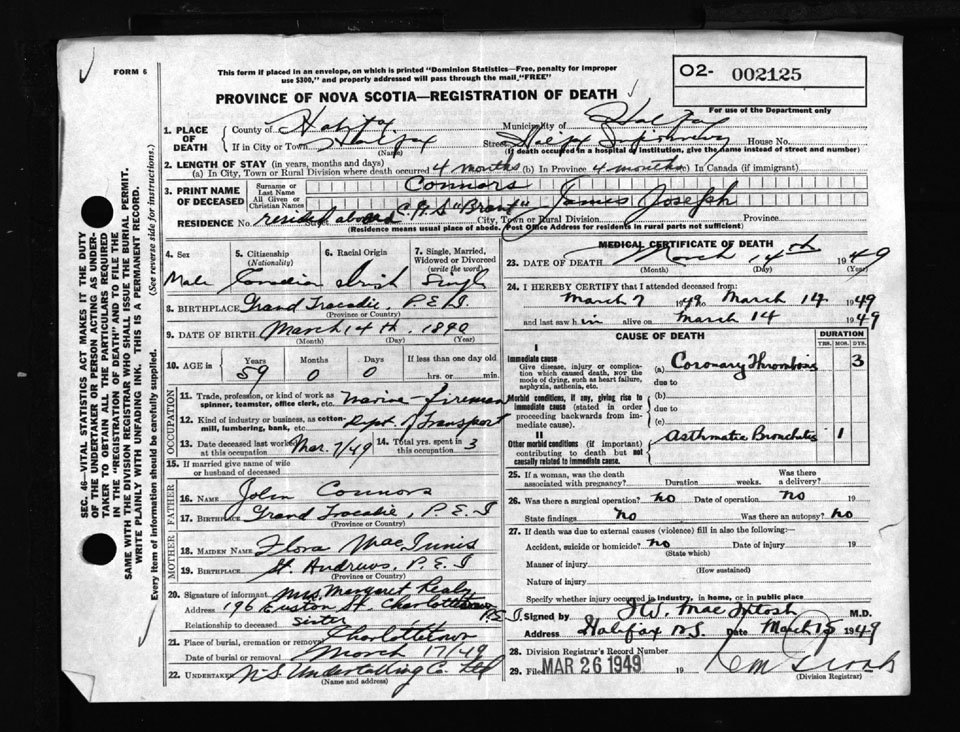 FORM 6
This form if placed in an envelope, on which is printed "Dominion Statistics—Free, penalty for improper
use $300," and properly addressed will pass through the mail "FREE"
O2- 002125
For use of the Department only
PROVINCE OF NOVA SCOTIA—REGISTRATION OF DEATH
1. PLACE OF DEATH
County of Halifax Municipality of Halifax
If in City or Town Halifax Street Halifax Infirmary House No.
(If death occurred in a hospital of institution, give the name instead of street and number)
2. LENGTH OF STAY (in years, months and days)
(a) In City, Town or Rural Division where death occurred 4 months (b) In Province 4 months (c) In Canada (if immigrant)
3. PRINT NAME OF DECEASED
Surname or Last Name Connors
All Given or Christian Names James Joseph
RESIDENCE No. resided aboard Street C.G.S "Brant" City, Town or Rural Division Province
(Residence means usual place of abode. Post Office Address for residents in rural parts not sufficient)
4. Sex Male
5. Citizenship (Nationality) Canadian
6. Racial Origin Irish
7. Single, Married, Widowed or Divorced (write the word) Single
8. BIRTHPLACE Grand Tracadie, P.E.I.
(Province or Country)
9. DATE OF BIRTH March 14th, 1890
(Month) (Day) (Year)
10. AGE in Years 59 Months 0 Days 0 If less than one day old hrs. or min.
OCCUPATION
11. Trade, profession, or kind of work as spinner, teamster, office clerk, etc. Marine-fireman
12. Kind of industry or business, as cotton-mill, lumbering, bank, etc. Dept. of Transport
13. Date deceased last worked at this occupation Mar. 7/49 14. Total yrs. spent in this occupation 3
15. If married give name of wife or husband of deceased
FATHER
16. NAME John Connors
17. BIRTHPLACE Grand Tracadie, P.E.I
(Province or Country)
MOTHER
18. MAIDEN NAME Flora MacInnis
19. BIRTHPLACE St. Andrews, P.E.I
(Province or Country)
20. Signature of informant Mrs. Margaret Realy
Address 196 Euston St. Charlottetown P.E.I.
Relationship to deceased sister
21. Place of burial, cremation or removal Charlottetown
Date of burial or removal March 17/49
22. UNDERTAKER N.S. Undertaking Co. Ltd
(Name and address)
MEDICAL CERTIFICATE OF DEATH
23. DATE OF DEATH March 14th 1949
(Month) (Day) (Year)
24. I HEREBY CERTIFY that I attended deceased from:
March 7 1949 to March 14 1949
and last saw him alive on March 14 1949
CAUSE OF DEATH
DURATION
YRS. MOS. DYS.
I
Immediate cause
Give disease, injury or complication which caused death, not the mode of dying, such as heart failure, asphyxia, asthenia, etc.
(a) Coronary Thrombosis 3
due to
Morbid conditions, if any, giving rise to immediate cause (stated in order proceeding backwards from immediate cause).
(b)
due to
(c)
II
Other morbid conditions (if important) contributing to death but not causally related to immediate cause.
Asthmatic Bronchitis 1
25. If a woman, was the death associated with pregnancy? Duration weeks. Was there a delivery?
26. Was there a surgical operation? no Date of operation no 19
State findings no Was there an autopsy? no
27. If death was due to external causes (violence) fill in also the following:—
Accident, suicide or homicide? no Date of injury 19
(State which)
Manner of injury
(How sustained)
Nature of injury
Specify whether injury occurred in industry, in home, or in public place
Signed by MacIntosh M.D.
Address Halifax N.S. Date March 15 1949
28. Division Registrar's Record Number
29. Filed MAR 26 1949 19
(Division Registrar)
SEC. 46—VITAL STATISTICS ACT MAKES IT THE DUTY
OF THE UNDERTAKER OR PERSON ACTING AS UNDER-
TAKER TO OBTAIN ALL THE PARTICULARS REQUIRED
IN THE "REGISTRATION OF DEATH" AND TO FILE THE
SAME WITH THE DIVISION REGISTRAR WHO SHALL ISSUE THE BURIAL PERMIT.
WRITE PLAINLY WITH UNFADING INK. THIS IS A PERMANENT RECORD.
Every item of information should be carefully supplied. (See reverse side for instructions.)